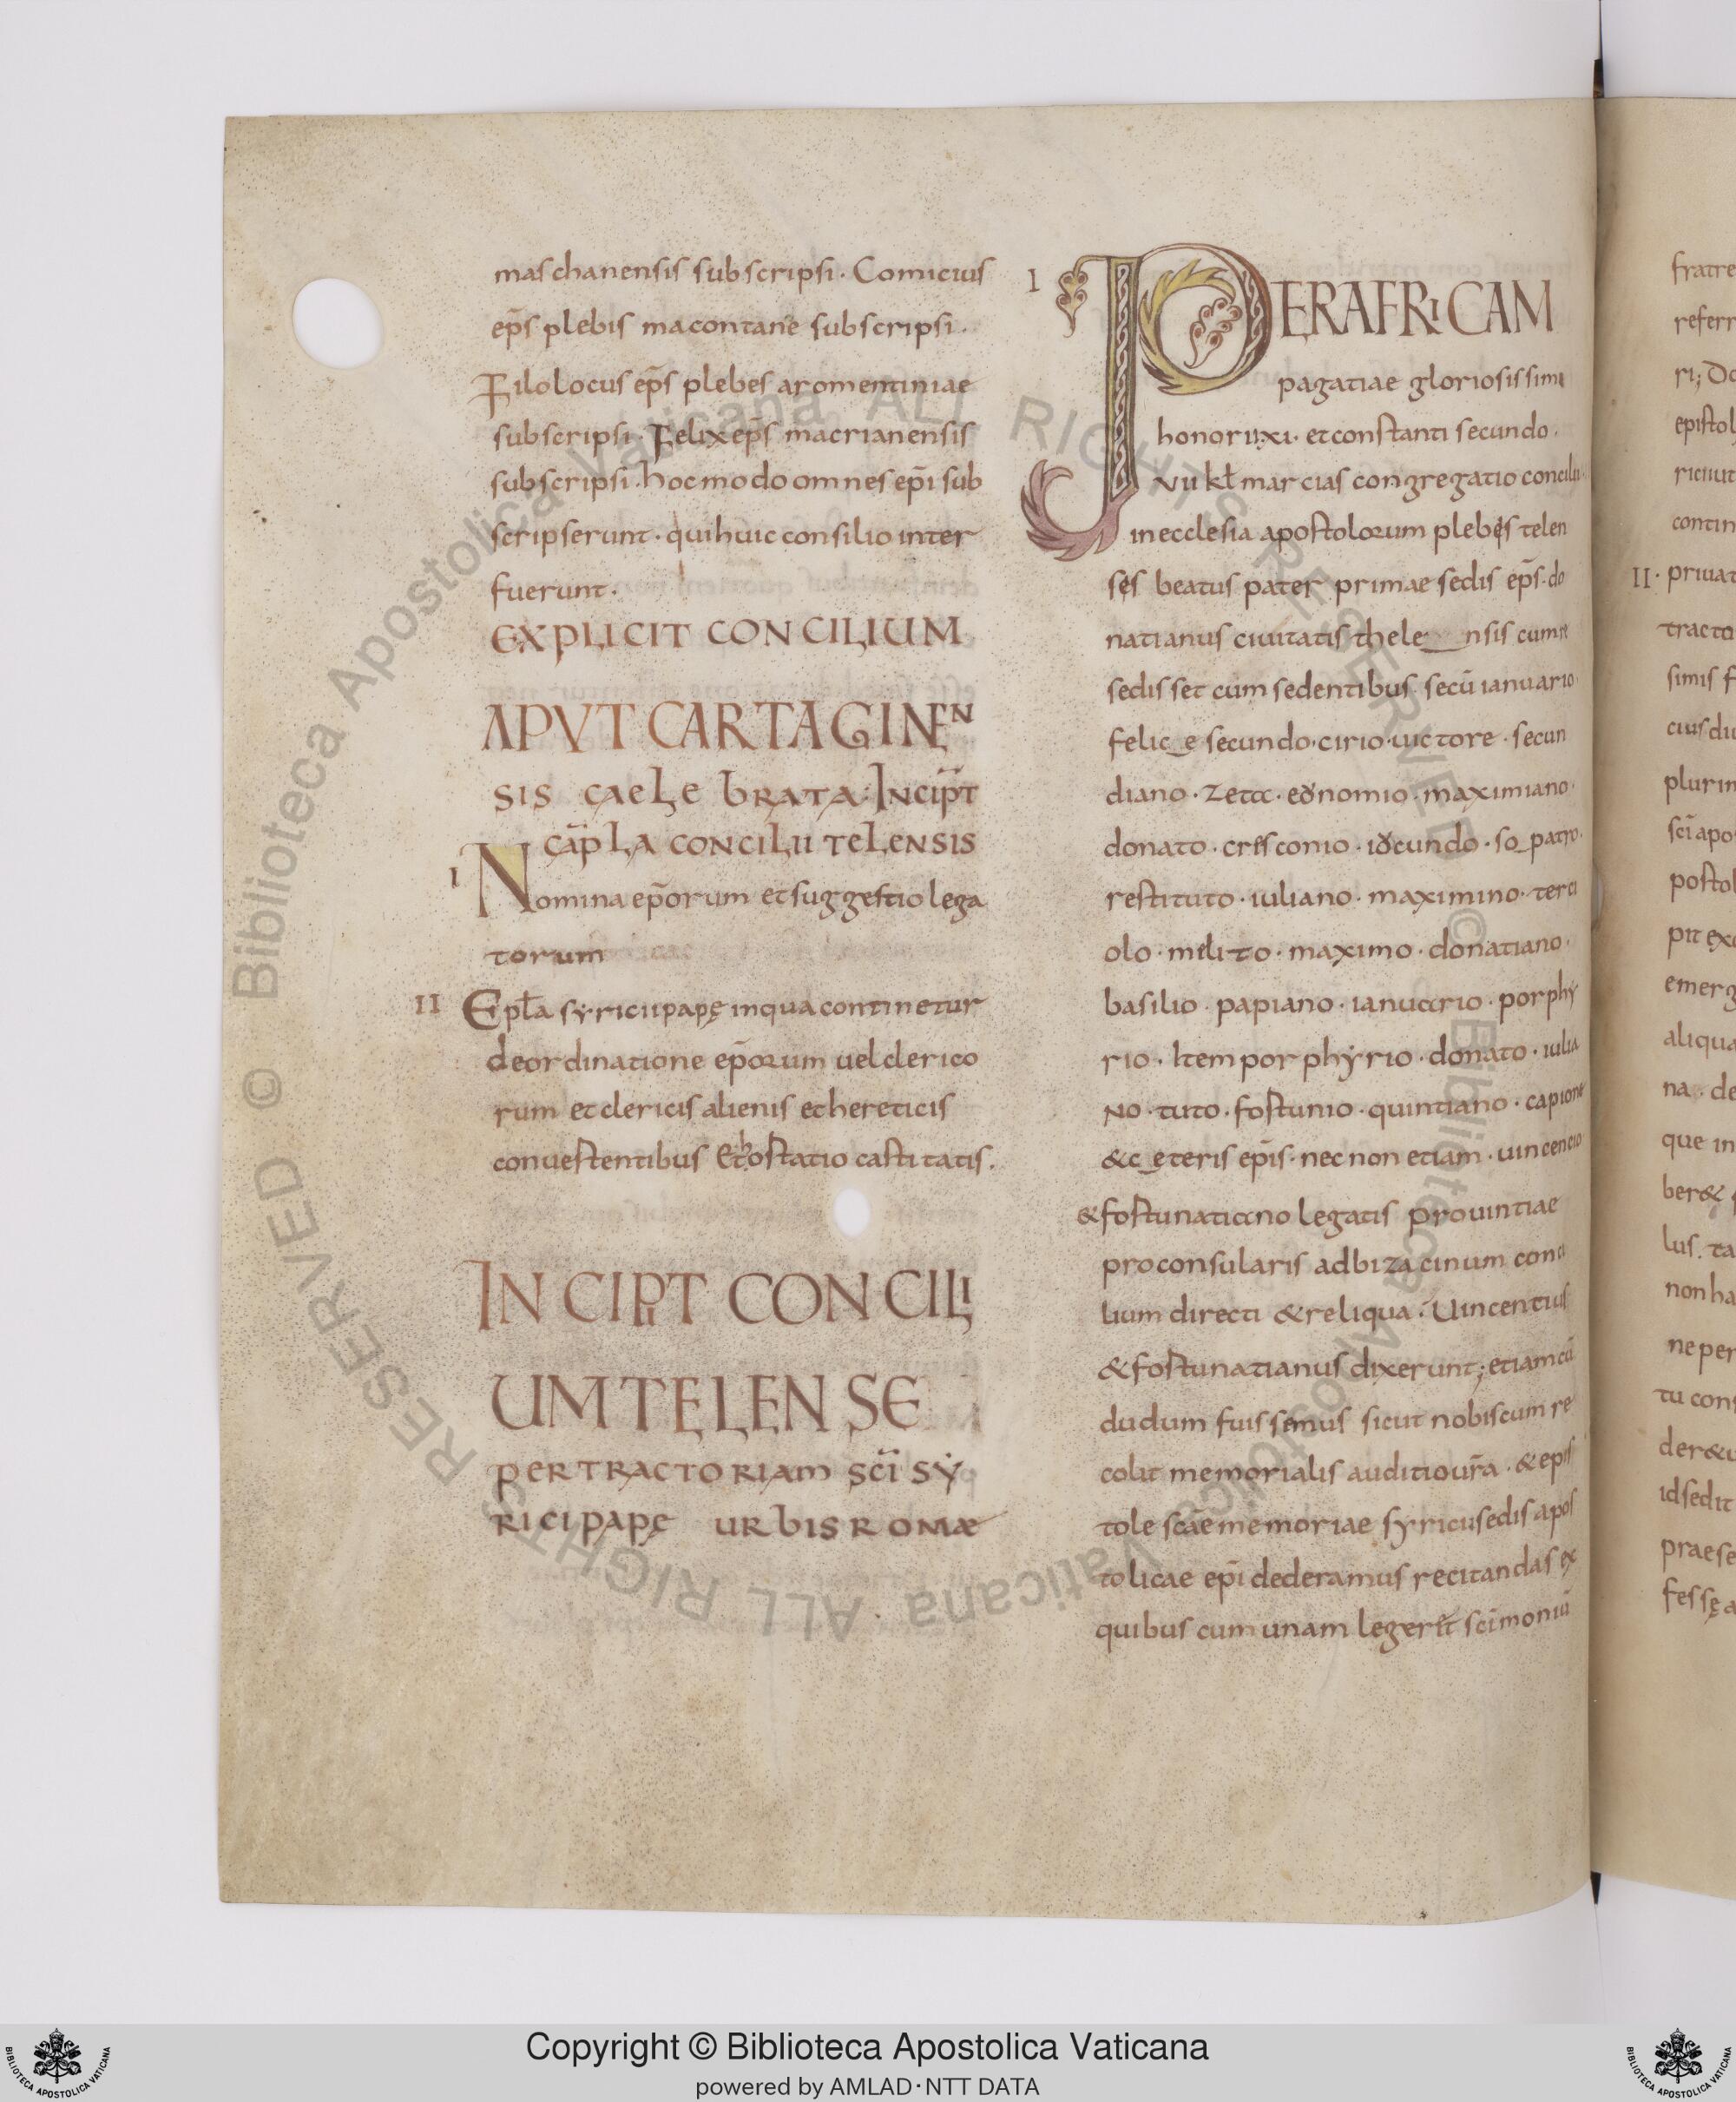 maschanensis subscripsi· Comicius
ep̄s plebis macontane subscripsi·
Filolocus ep̄s plebes aromentiniae
subscripsi· Felix ep̄s macrianensis
subscripsi· hoc modo omnes ep̄i sub
scripserunt· qui huic consilio inter
fuerunt·
EXPLICIT CONCILIUM
APVT CARTAGINEN
SIS CAELEBRATA· INCIP̄T
CAP̄LA CONCILII TELENSIS
I Nomina ep̄orum et suggestio lega
torum
II Epl̄a syricii papę in qua continetur
de ordinatione ep̄orum uel clerico
rum et clericis alienis et hereticis
conuestentibus Et obstatio castitatis·
INCIPIT CONCILI
UM TELENSE
PER TRACTORIAM SC̄I SY
RICI PAPĘ URBIS ROMÆ
I PER AFRICAM
pagatiae gloriosissimi
honorii xi· et constanti secundo·
VII kl̄ marcias congregatio concilii
in ecclesia apostolorum plebes telen
ses beatus pater primae sedis ep̄s· do
natianus ciuitatis thelensis cum
sedisset cum sedentibus secū ianuario·
felice secundo· cirio· uictore· secun
diano· zeta· eunomio· maximiano·
donato· cresconio· iucundo· sopatro·
restituto· iuliano· maximino· terci
olo· melito· maximo· donatiano·
basilio· papiano· ianuario· porphy
rio· Item porphyrio· donato· iulia
No· tuto· fostunio· quintiano· capione
& ceteris ep̄is· nec non etiam· uincencio
& fostunatiano legatis prouintiae
proconsularis ad bizacinum conci
lium directi & reliqua· Uincentius
& fostunatianus dixerunt; etiam cū
dudum fuissemus sicut nobiscum re
colit memorialis auditio ur̄a· & epis
tole sc̄ae memoriae syricu sedis apos
tolicae ep̄i dederamus recitandas ex
quibus cum unam legerit sc̄imoniū
fratre
referr
ri; Do
epistol
riciiut
contin
II· priuat
tracto
simis f
cius du
plurim
sc̄i apo
postol
pit exc
emerg
aliqua
na· de
que in
ber& 
lus· ta
non ha
ne per
tu cons
der&u
id sedit
praese
fessę a
Biblioteca Apostolica Vaticana ALL RIGHTS RESERVED © Biblioteca Apostolica Vaticana ALL RIGHTS RESERVED ©
Copyright © Biblioteca Apostolica Vaticana
powered by AMLAD·NTT DATA
BIBLIOTECA APOSTOLICA VATICANA
BIBLIOTECA APOSTOLICA VATICANA